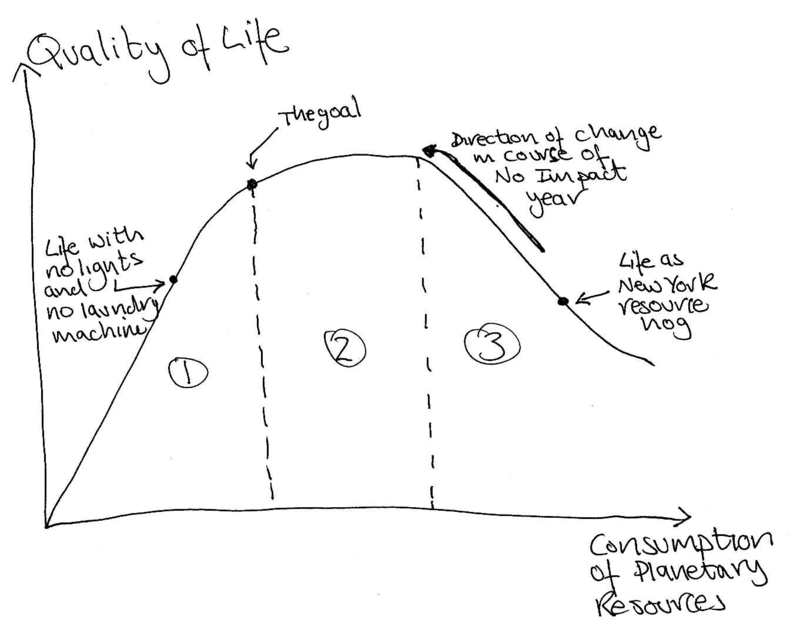 Quality of Life
The goal
Direction of change
in course of
No Impact
year
Life with
no lights
and
no laundry
machine
Life as
New York
resource
hog
1
2
3
Consumption
of Planetary
Resources